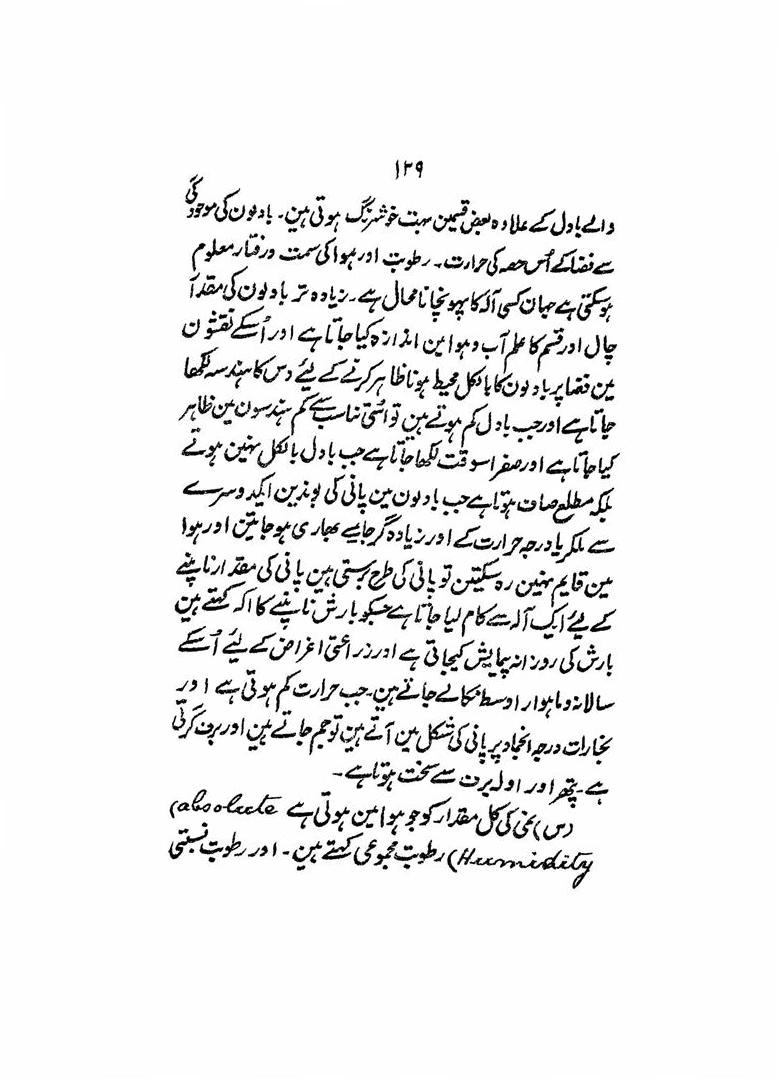 ۱۲۹
والے بادل کے علاوہ بعض قسمین بہت خوشرنگ ہوتی ہین۔ بادلون کی موجودگی
سے فضا کے اُس حصہ کی حرارت۔ رطوبت اور ہوا کی سمت و رفتار معلوم
ہوسکتی ہے جہان کسی آلہ کا پہونچانا محال ہے۔ زیادہ تر بادلون کی مقدار
چال اور قسم کا علم آب و ہوا مین اندازہ کیا جاتا ہے اور اُسکے نقشون
مین فضا پر بادلون کا بالکل محیط ہونا ظاہر کرنے کے لیئے دس کا ہندسہ لکھا
جاتا ہے اور جب بادل کم ہوتے ہین تو اسی تناسب سے کم ہندسون مین ظاہر
کیا جاتا ہے اور صفر اسوقت لکھا جاتا ہے جب بادل بالکل نہین ہوتے
بلکہ مطلع صاف ہوتا ہے جب بادلون مین پانی کی بوندین ایکدوسرے
سے ملکر یا درجہ حرارت کے اور زیادہ گر جانیسے بھاری ہو جائین اور ہوا
مین قایم نہین رہ سکتین تو پانی کی طرح برستی ہین پانی کی مقدار ناپنے
کے لیئے ایک آلہ سے کام لیا جاتا ہے جسکو بارش ناپنے کا آلہ کہتے ہین
بارش کی روزانہ پیمایش کیجاتی ہے اور زراعتی اغراض کے لیئے اُسکے
سالانہ و ماہوار اوسط نکالے جاتے ہین۔ جب حرارت کم ہوتی ہے اور
بخارات درجہ انجماد پر پانی کی شکل مین آتے ہین تو جم جاتے ہین اور برف گرتی
ہے۔ پتھر اور اولہ برف سے سخت ہوتا ہے۔
(س) نمی کی کل مقدار کو جو ہوا مین ہوتی ہے (absolute
Humidity) رطوبت مجموعی کہتے ہین۔ اور رطوبت نسبتی